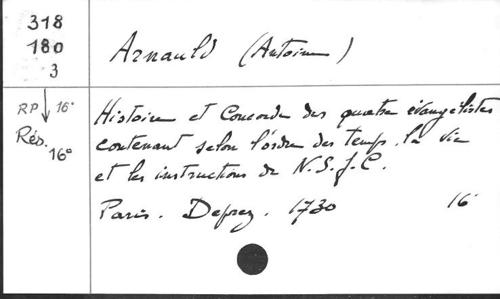 318
180
3
Arnauld (Antoine)
RP ↓ 16°
Rés. 16°
Histoire et Concorde des quatre évangélistes
contenant selon l'ordre des temps, la vie
et les instructions de N.S.J.C.
Paris. Deprez. 1730 16°